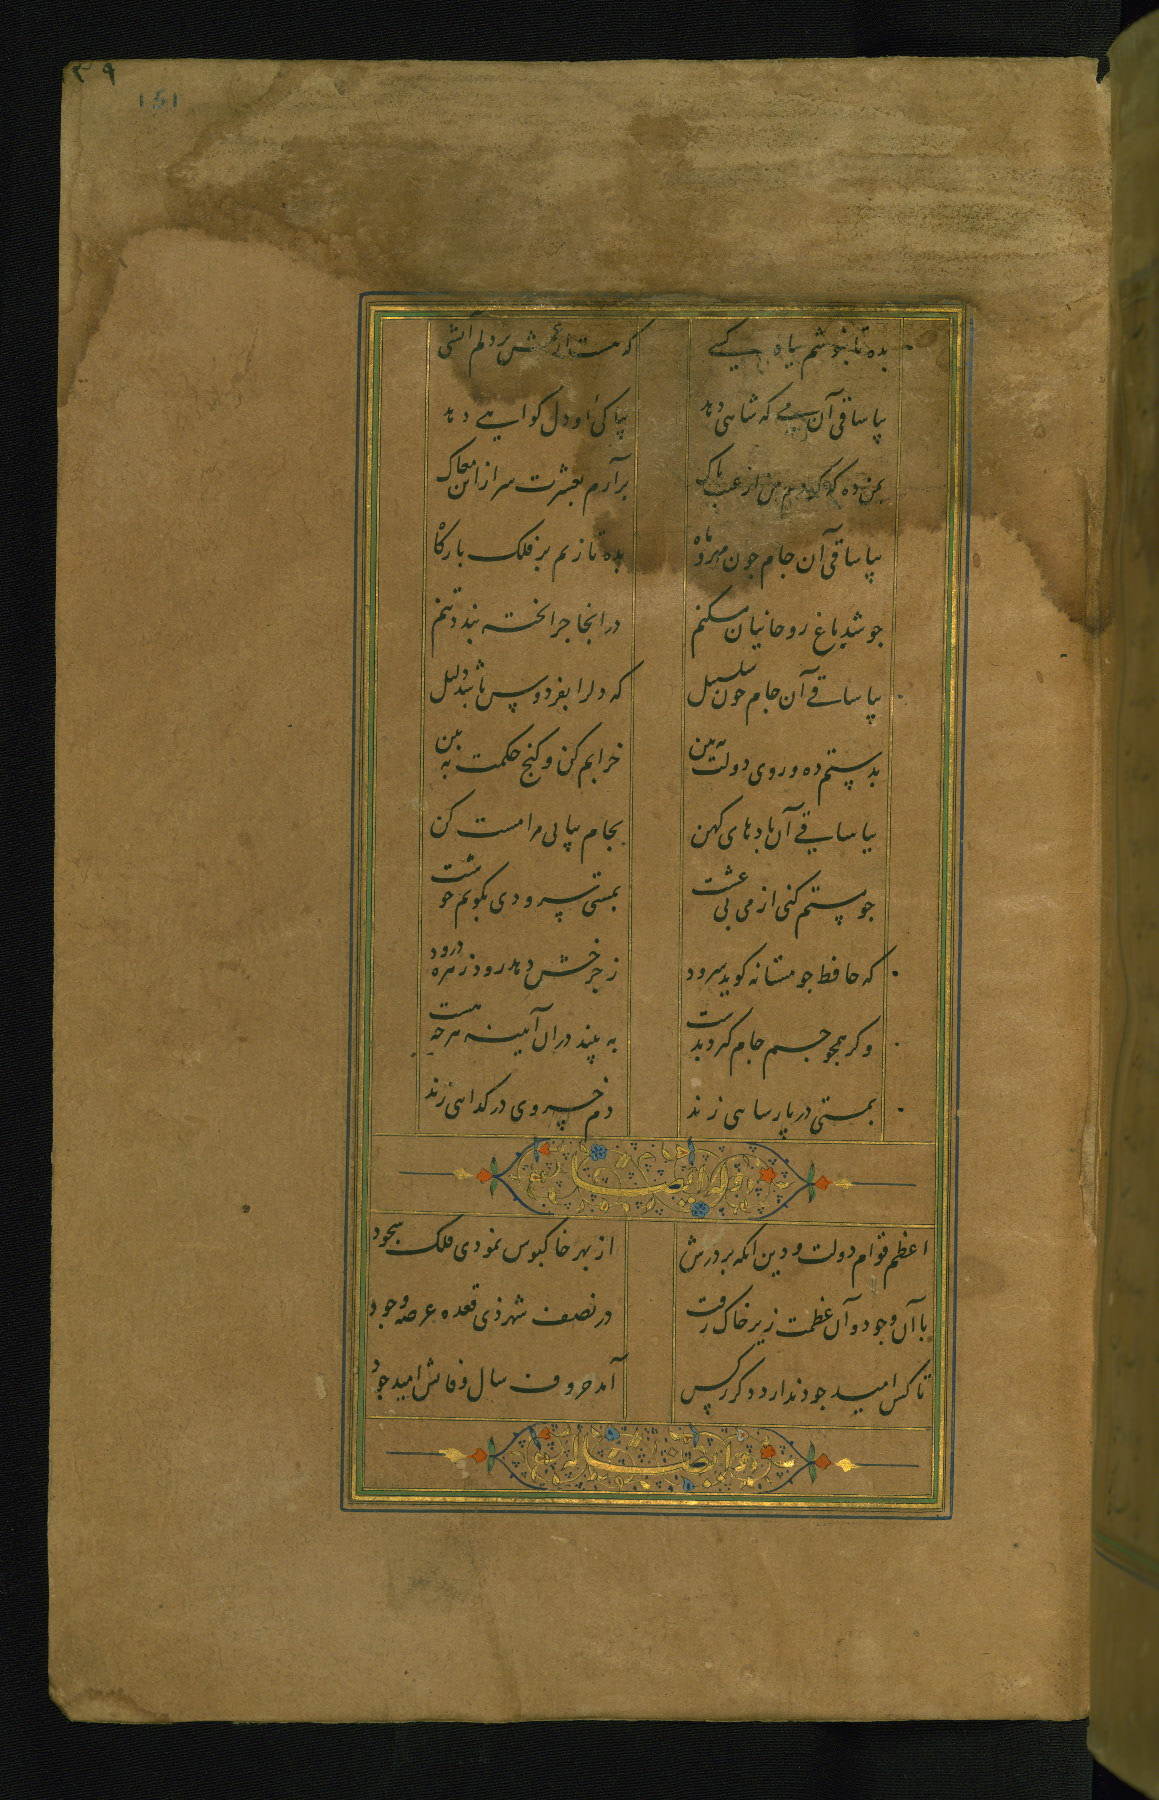 ۳۹
151
بده تا بنوشم بیاد کسی که هست از غمش بر دلم آتشی
بیا ساقی آن می که شاهی دهد بپاکئ او دل کواهی دهد
بمن ده که کردم من از عیب پاک برآرم بعشرت سر از این مغاک
بیا ساقی آن جام جون مهر و ماه بده تا زنم بر فلک بارکاه
جو شد باغ روحانیان مسکنم در انجا جرا تخته بند تنم
بیا ساقی آن جام جون سلسبیل که دلرا بفردوس باشد دلیل
بدستم ده و روی دولت ببین خرابم کن و کنج حکمت ببین
بیا ساقی آن بادهای کهن بجام پیاپی مرا مست کن
جو مستم کنی از می بی غشت بمستی سرودی بکویم خوشت
که حافظ جو مستانه کوید سرود ز جرخش دهد رود زهره درود
وکر همجو جم جام کیرد بدست به بیند در ان آیینه هرجه هست
بمستی در پارسایی زند دم خسروی در کدایی زند
وله ایضا
اعظم قوام دولت و دین انکه بر درش از بهر خاکبوس نمودی فلک سجود
با آن وجود و آن عظمت زیر خاک رفت در نصف شهر ذی قعده عرصه وجود
تا کس امید جود ندارد دکر ز کس آمد حروف سال وفاتش امید جود
و ایضا له